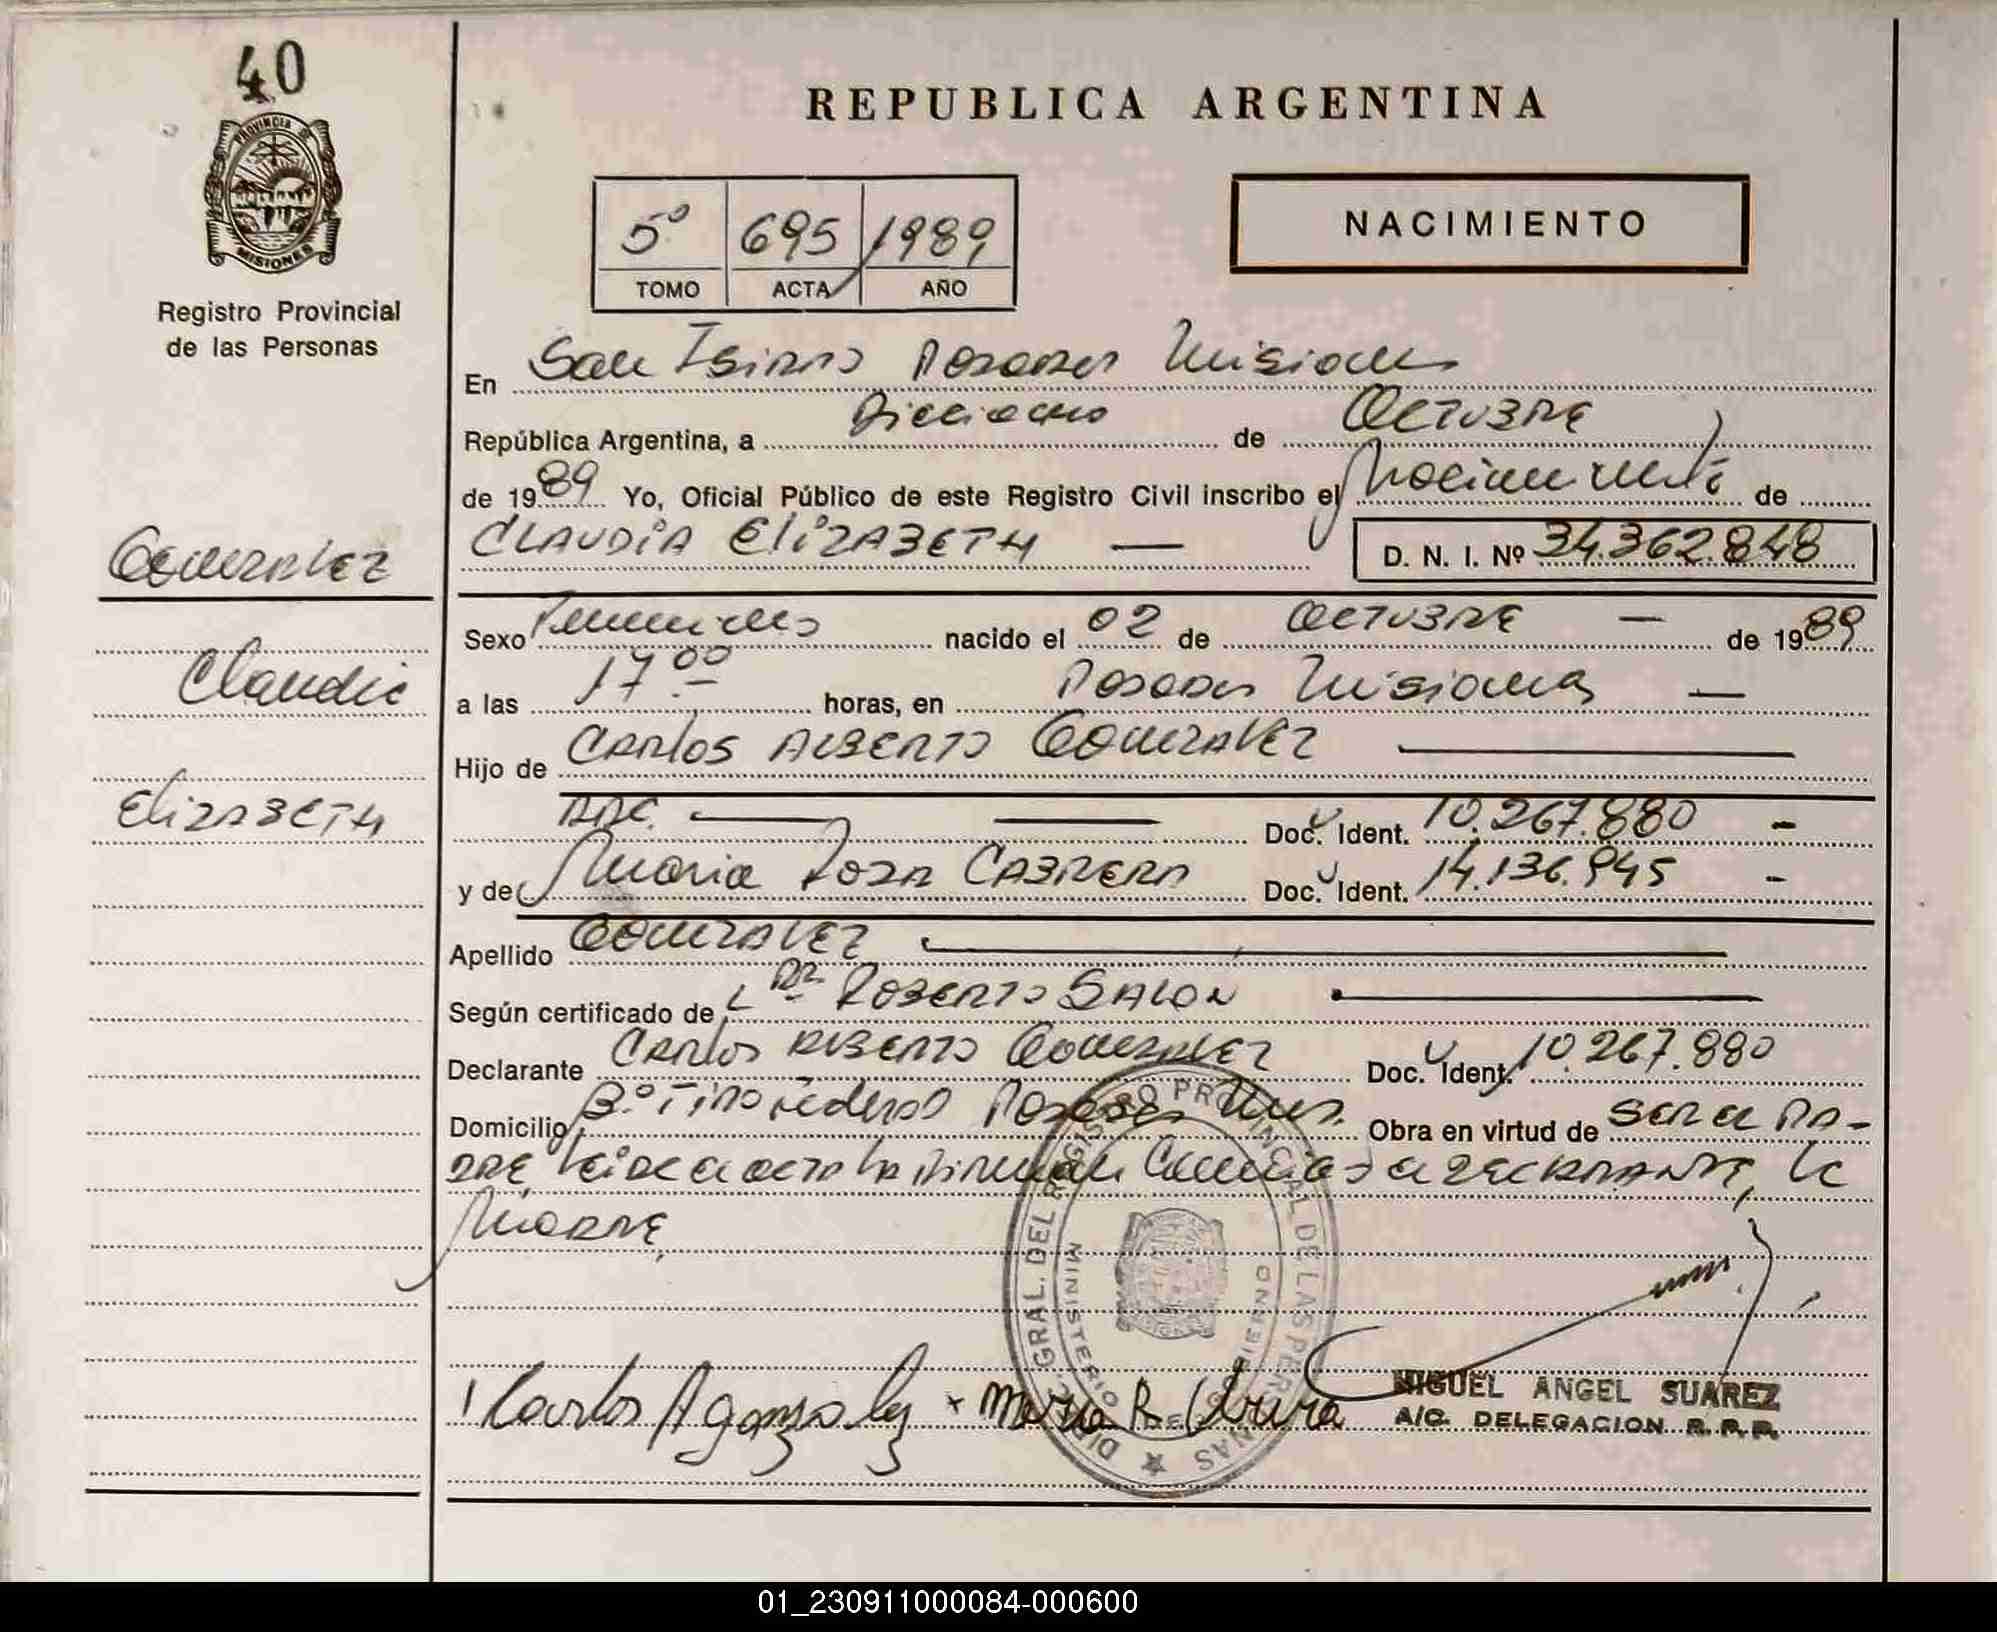 40
PROVINCIA DE
MISIONES
Registro Provincial
de las Personas
REPUBLICA ARGENTINA
5º 695 1989
TOMO ACTA AÑO
NACIMIENTO
En San Isidro Posadas Misiones
República Argentina, a Dieciocho de Octubre
de 1989 Yo, Oficial Público de este Registro Civil inscribo el Nacimiento de
Gonzalez
CLAUDIA ELIZABETH — D. N. I. Nº 34.362.848
Sexo Femenino nacido el 02 de Octubre — de 1989
Claudia
a las 17 00 horas, en Posadas Misiones —
Hijo de Carlos Alberto Gonzalez
Elizabeth
ARG. — — Doc. Ident. 10.267.880 -
y de Maria Rosa Cabrera Doc. Ident. 14.136.945 -
Apellido Gonzalez
Según certificado de Dr Roberto Salón
Declarante Carlos Alberto Gonzalez Doc. Ident. 10.267.880
Domicilio Bº Tiro Federal Posadas Mnes. Obra en virtud de ser el Pa-
dre, leida el acta la firman conmigo el declarante, la
Madre,
DIR. GRAL. DEL REGISTRO PROVINCIAL DE LAS PERSONAS
MINISTERIO DE GOBIERNO
Carlos A gonzalez x Maria R.
MIGUEL ANGEL SUAREZ
A/C. DELEGACION R. P. P.
01_230911000084-000600